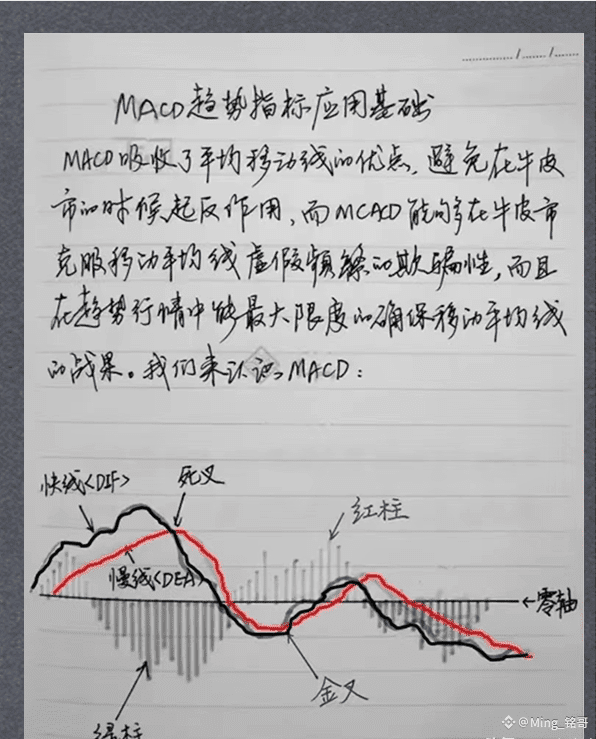 MACD趋势指标应用基础
MACD吸收了平均移动线的优点,避免在牛皮
市的时候起反作用,而MCACD能够在牛皮市
克服移动平均线虚假频繁的欺骗性,而且
在趋势行情中能最大限度的确保移动平均线
的战果。我们来认识MACD:
快线<DIF>
死叉
红柱
慢线<DEA>
←零轴
金叉
绿柱
@Ming_铭哥